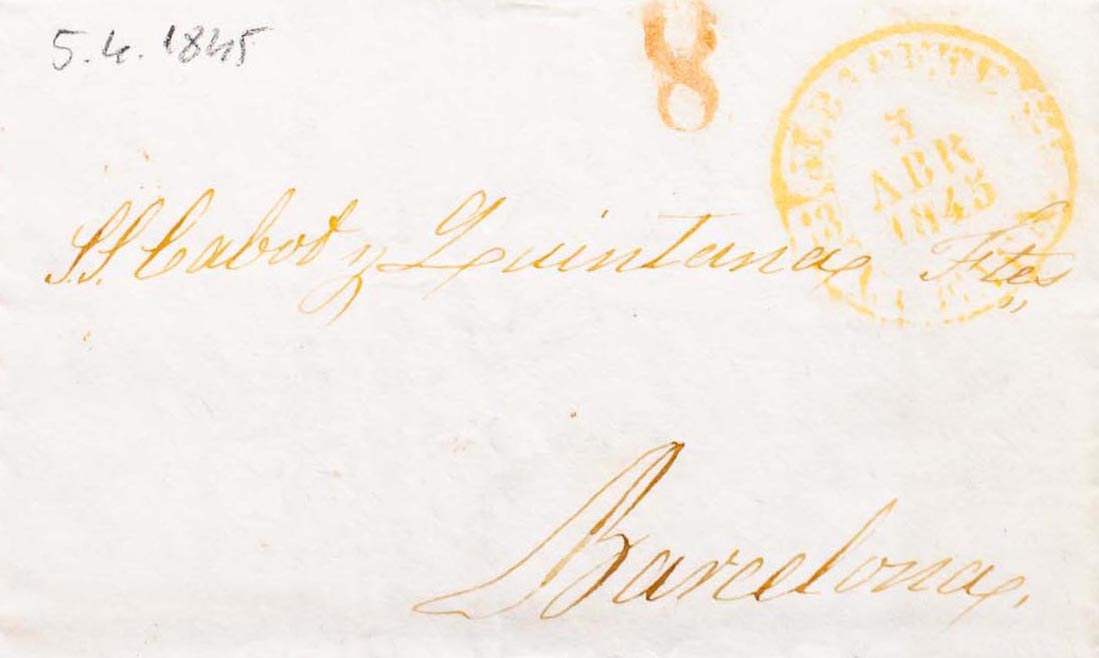 5.4.1845
8
5
ABR
1845
S.S. Cabot y Quintana Ftes
Barcelona.